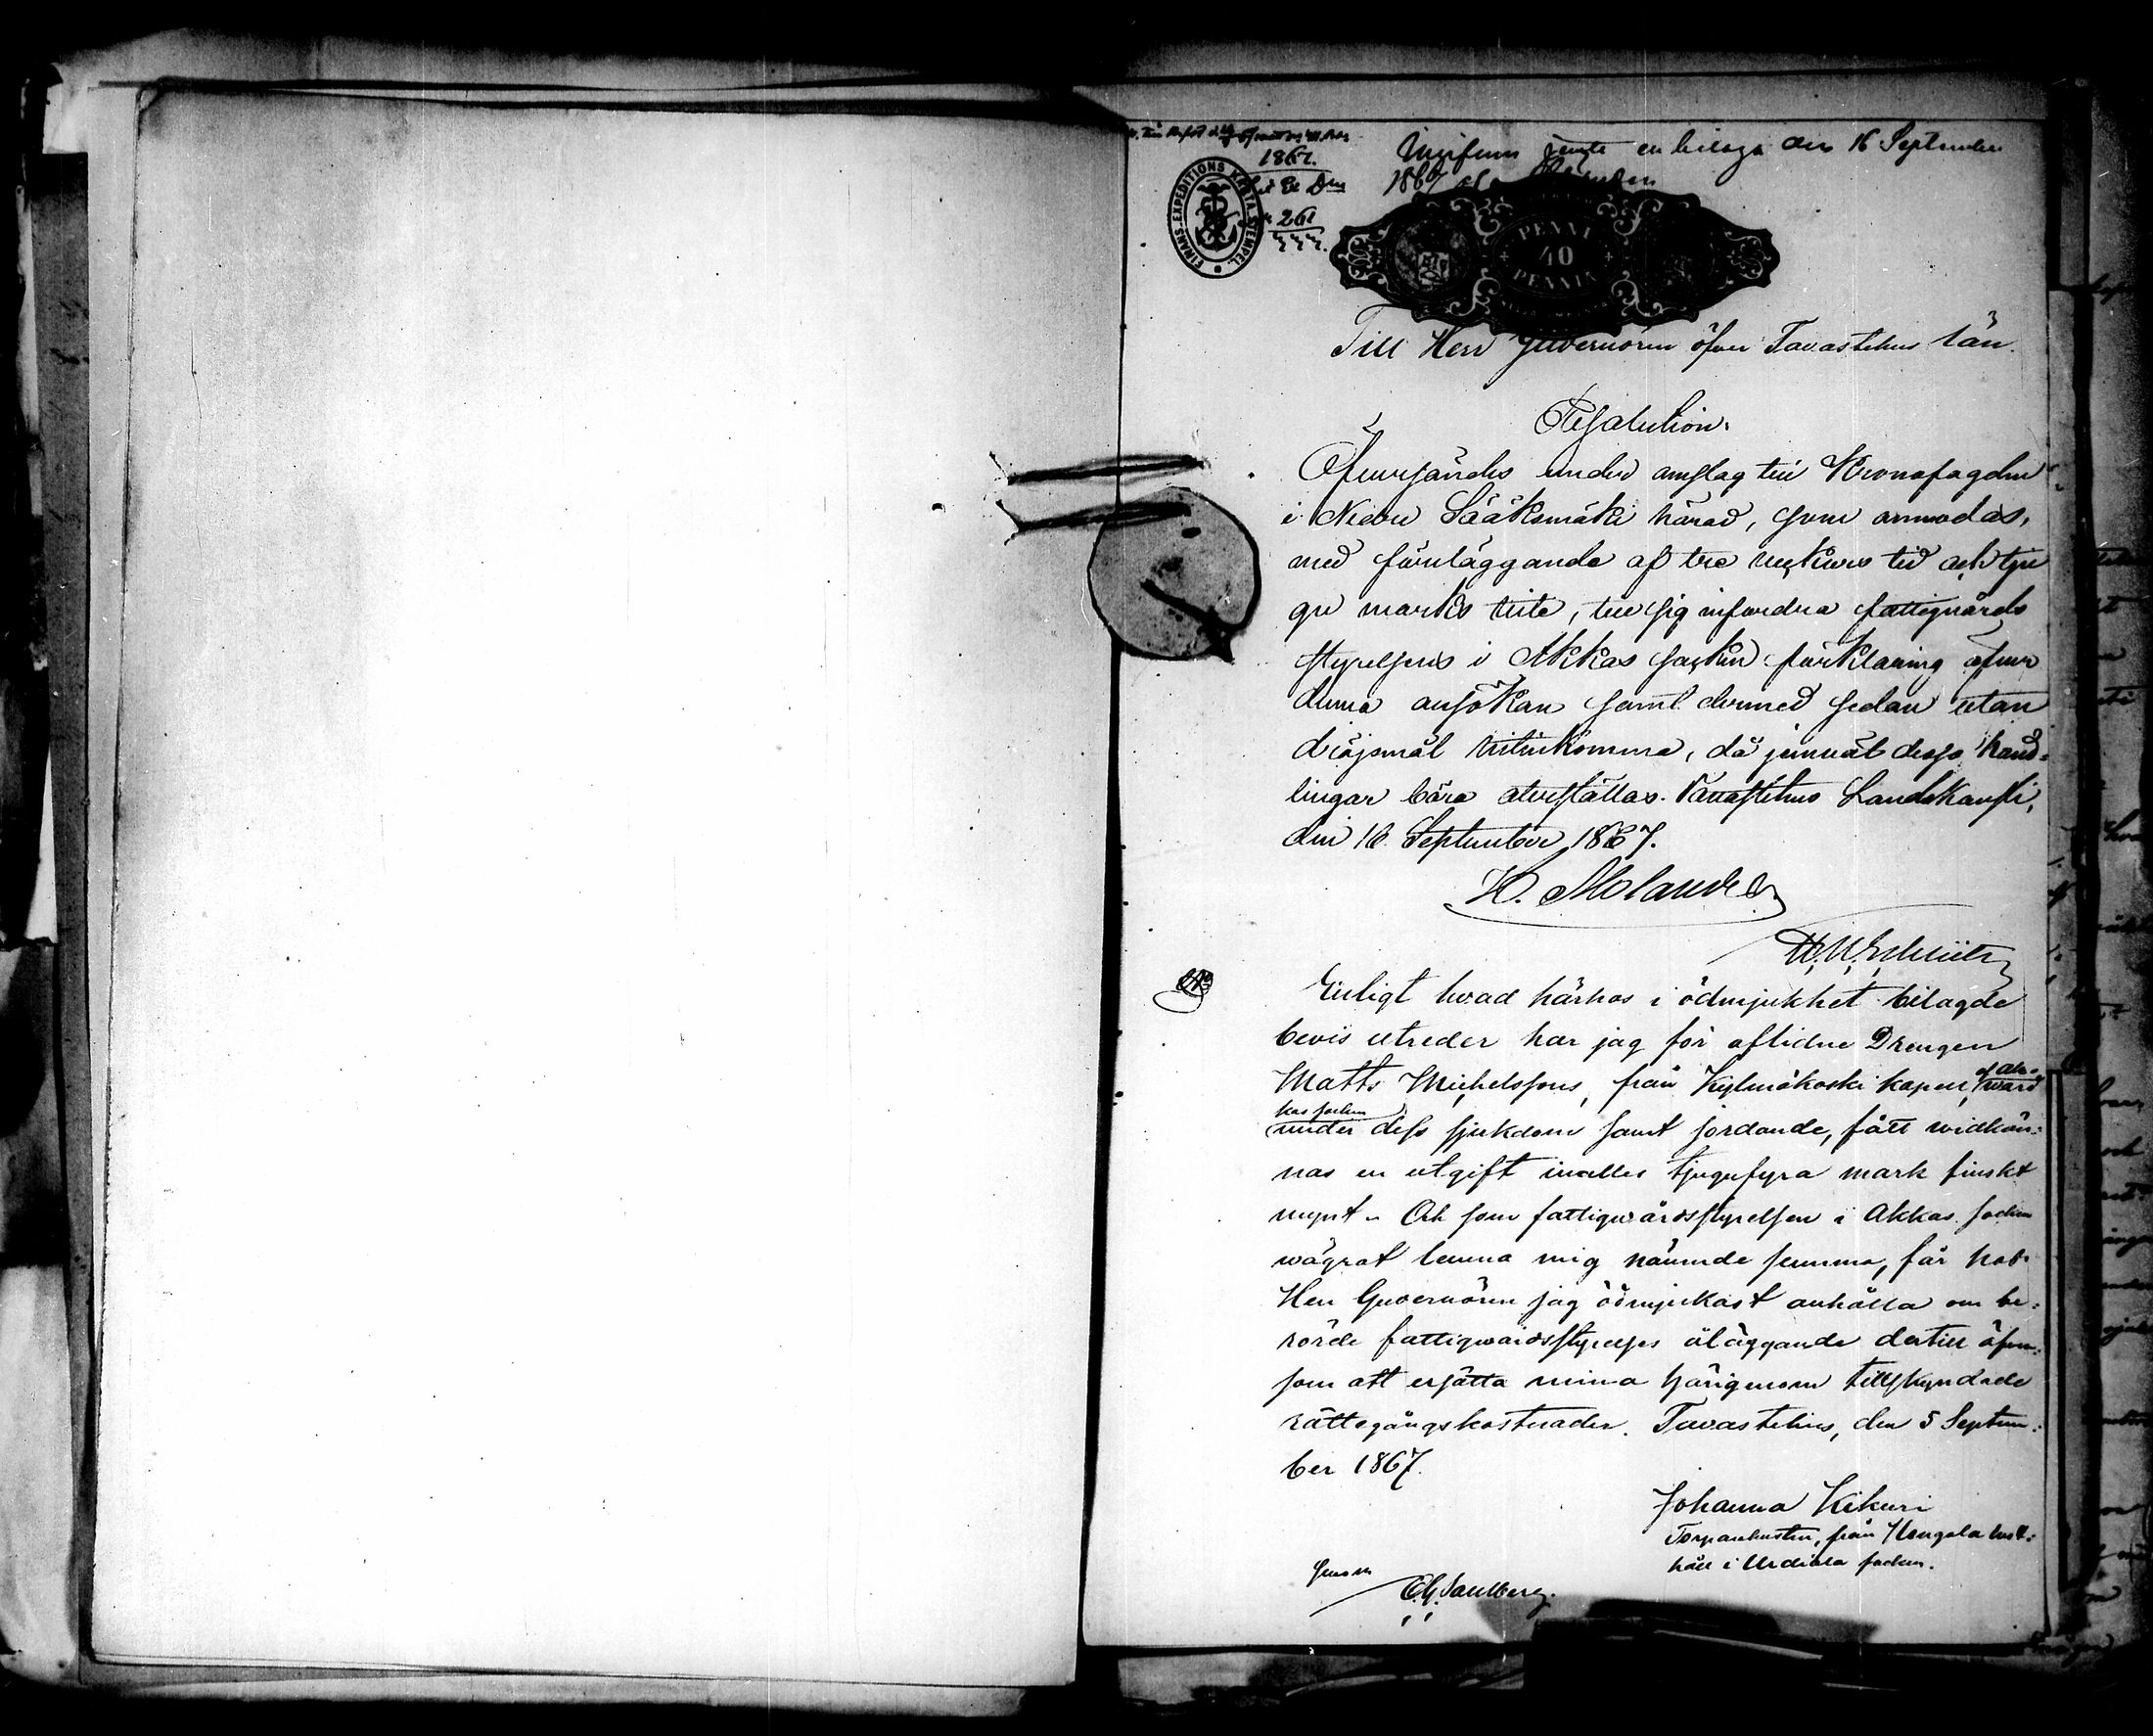 1867.
Lit E. Dm
N 261
FINANS-EXPEDITIONS KARTA STEMPEL.
Ingifven jemte en bilaga den 16 September
1867 af
PENNI
40
PENNIÄ
Till Herr Guvernören öfver Tavastehus län.
Resolution.
Öfversändes under omslag till Kronofogden
i Nedre Sääksmäki härad, som anmodas,
med föreläggande af tre veckors tid och tju
gu marks vite, till sig infordra fattigvårds
styrelsens i Akkas socken förklaring öfver
denna ansökan samt dermed sedan utan
dröjsmål inkomma, då jemväl dessa hand-
lingar böra återställas. Tavastehus Landskansli,
den 16 September 1867.
H. Molander
Enligt hvad härhos i ödmjukhet bilagde
bevis utreder har jag för aflidne Drengen
Matts Michelssons, från Kylmäkoski kapell af Ak-
kas socken vård
under dess sjukdom samt jordande, fått widkän-
nas en utgift inalles tjugufyra mark finskt
mynt. Och som fattigwårdsstyrelsen i Akkas socken
wägrat lemna mig nämnde summa, får hos
Herr Guvernören jag ödmjukast anhålla om be-
rörde fattigwårdsstyrelses åläggande dertill äfven-
som att ersätta mina härigenom tillskyndade
rättegångskostnader. Tavastehus, den 5 Septem-
ber 1867.
Johanna Kikuri
Torparehustru, från Hongola rust-
håll i Urdiala socken.
Genom
C. G. Sahlberg.